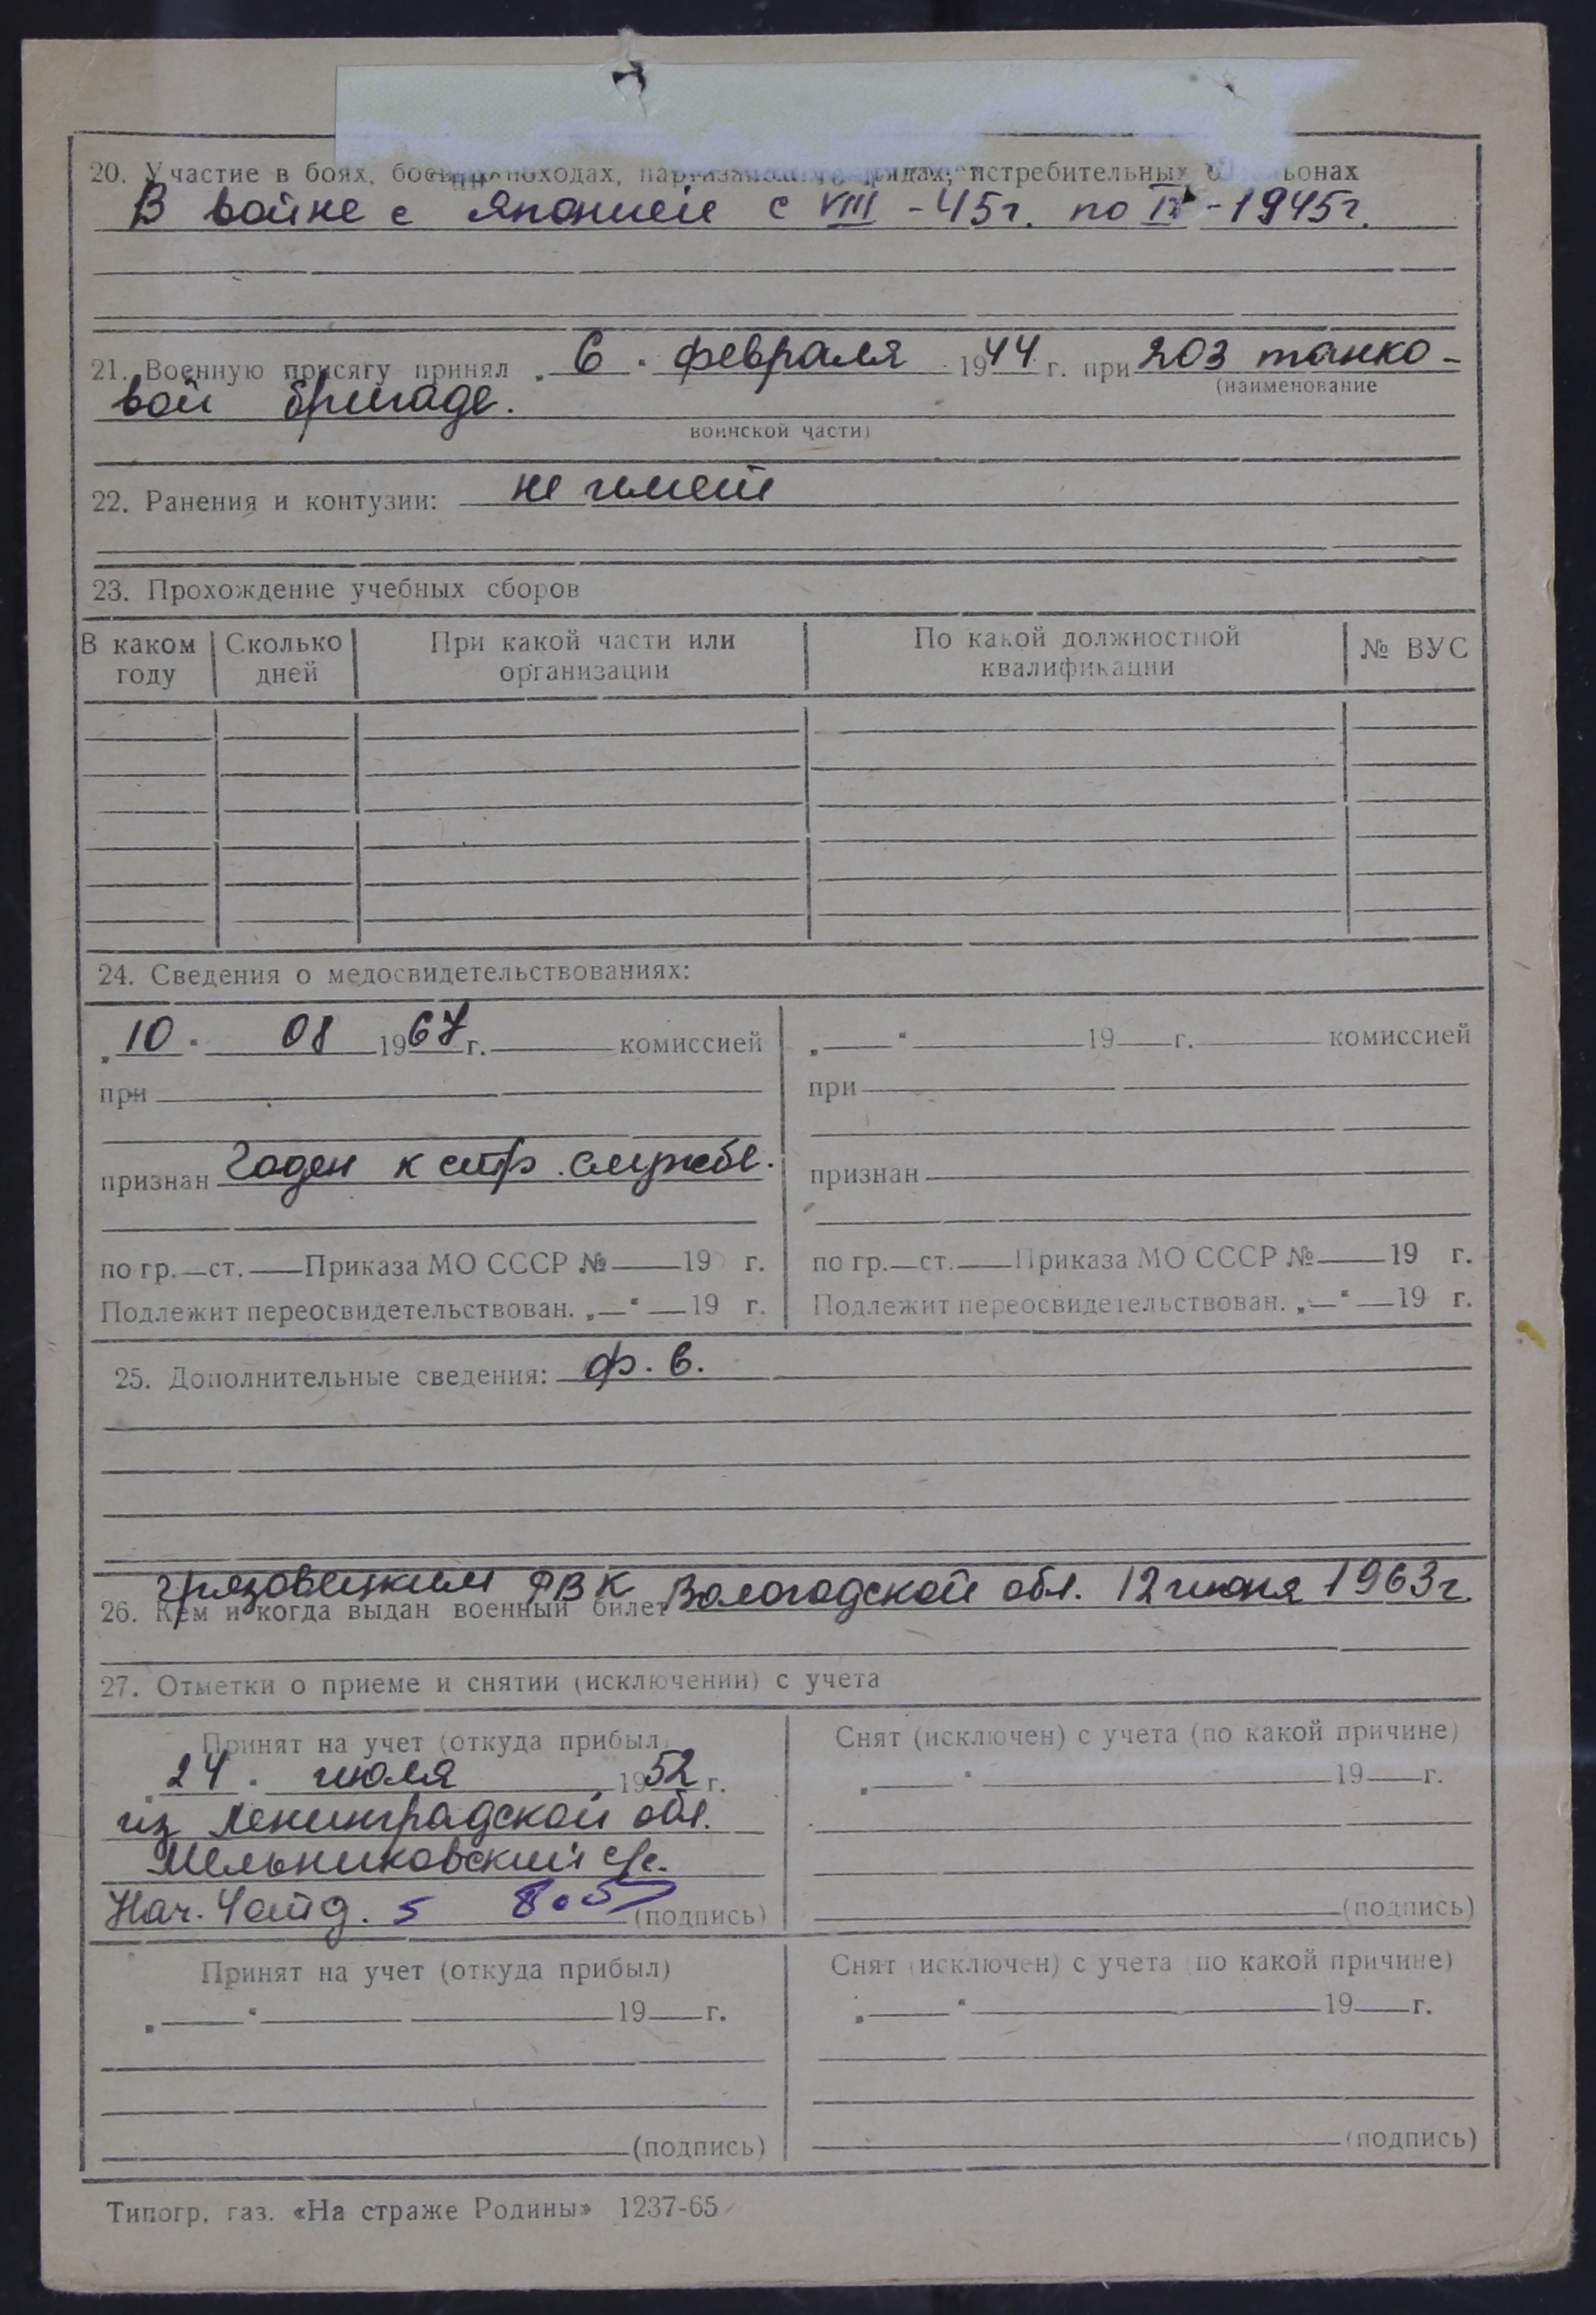 20. Участие в боях, боевых походах, партизанских отрядах, истребительных батальонах
В войне с Японией с VIII - 45г. по IX - 1945г.
21. Военную присягу принял „6“ февраля 1944 г. при 203 танко-
(наименование
вой бригаде.
воинской части)
22. Ранения и контузии: не имеет
23. Прохождение учебных сборов
В каком году Сколько дней При какой части или организации По какой должностной квалификации № ВУС
24. Сведения о медосвидетельствованиях:
„10“ 08 1967г. комиссией
при
признан Годен к стр. службе.
по гр. ст. Приказа МО СССР № 19 г.
Подлежит переосвидетельствован. „ “ 19 г.
„ “ 19 г. комиссией
при
признан
по гр. ст. Приказа МО СССР № 19 г.
Подлежит переосвидетельствован. „ “ 19 г.
25. Дополнительные сведения: ф. в.
26. Кем и когда выдан военный билет Грязовецким РВК Вологодской обл. 12 июня 1963г.
27. Отметки о приеме и снятии (исключении) с учета
Принят на учет (откуда прибыл)
„24“ июля 1952 г.
из Ленинградской обл.
Мельниковский с/с.
Нач.
(подпись)
Снят (исключен) с учета (по какой причине)
„ “ 19 г.
(подпись)
Принят на учет (откуда прибыл)
„ “ 19 г.
(подпись)
Снят (исключен) с учета (по какой причине)
„ “ 19 г.
(подпись)
Типогр. газ. «На страже Родины» 1237-65